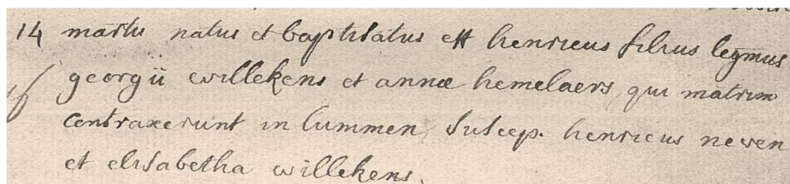 14 martii natus et baptisatus est henricus filius legmus
georgii willekens et annæ hemelaers, qui matrim
contraxerunt in lummen, suscep. henricus neven
et elisabetha willekens.